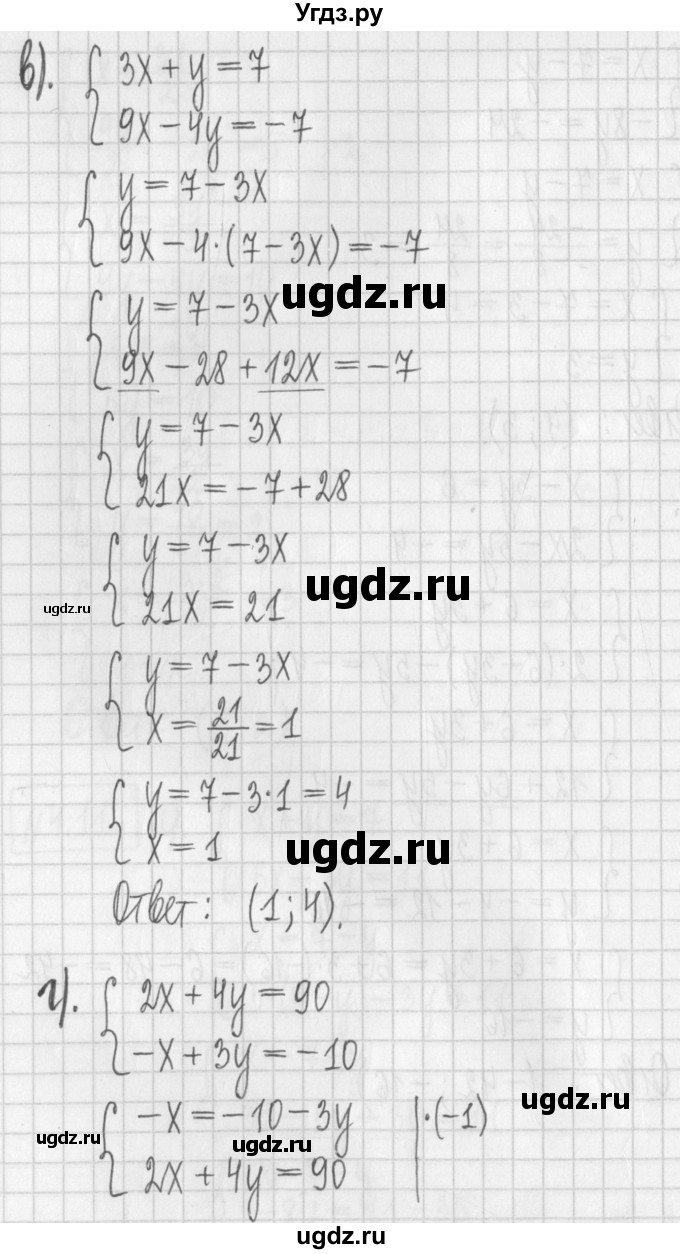 Угдз.ру
в). { 3x + y = 7
9x - 4y = -7
{ y = 7 - 3x
9x - 4·(7 - 3x) = -7
ugdz.ru
{ y = 7 - 3x
9x - 28 + 12x = -7
{ y = 7 - 3x
21x = -7 + 28
{ y = 7 - 3x
ugdz.ru
ugdz.ru
21x = 21
{ y = 7 - 3x
x = 21/21 = 1
{ y = 7 - 3·1 = 4
x = 1
ugdz.ru
Ответ: (1; 4).
г). { 2x + 4y = 90
-x + 3y = -10
ugdz.ru
{ -x = -10 - 3y |·(-1)
ugdz.ru
ugdz.ru
2x + 4y = 90
ugdz.ru